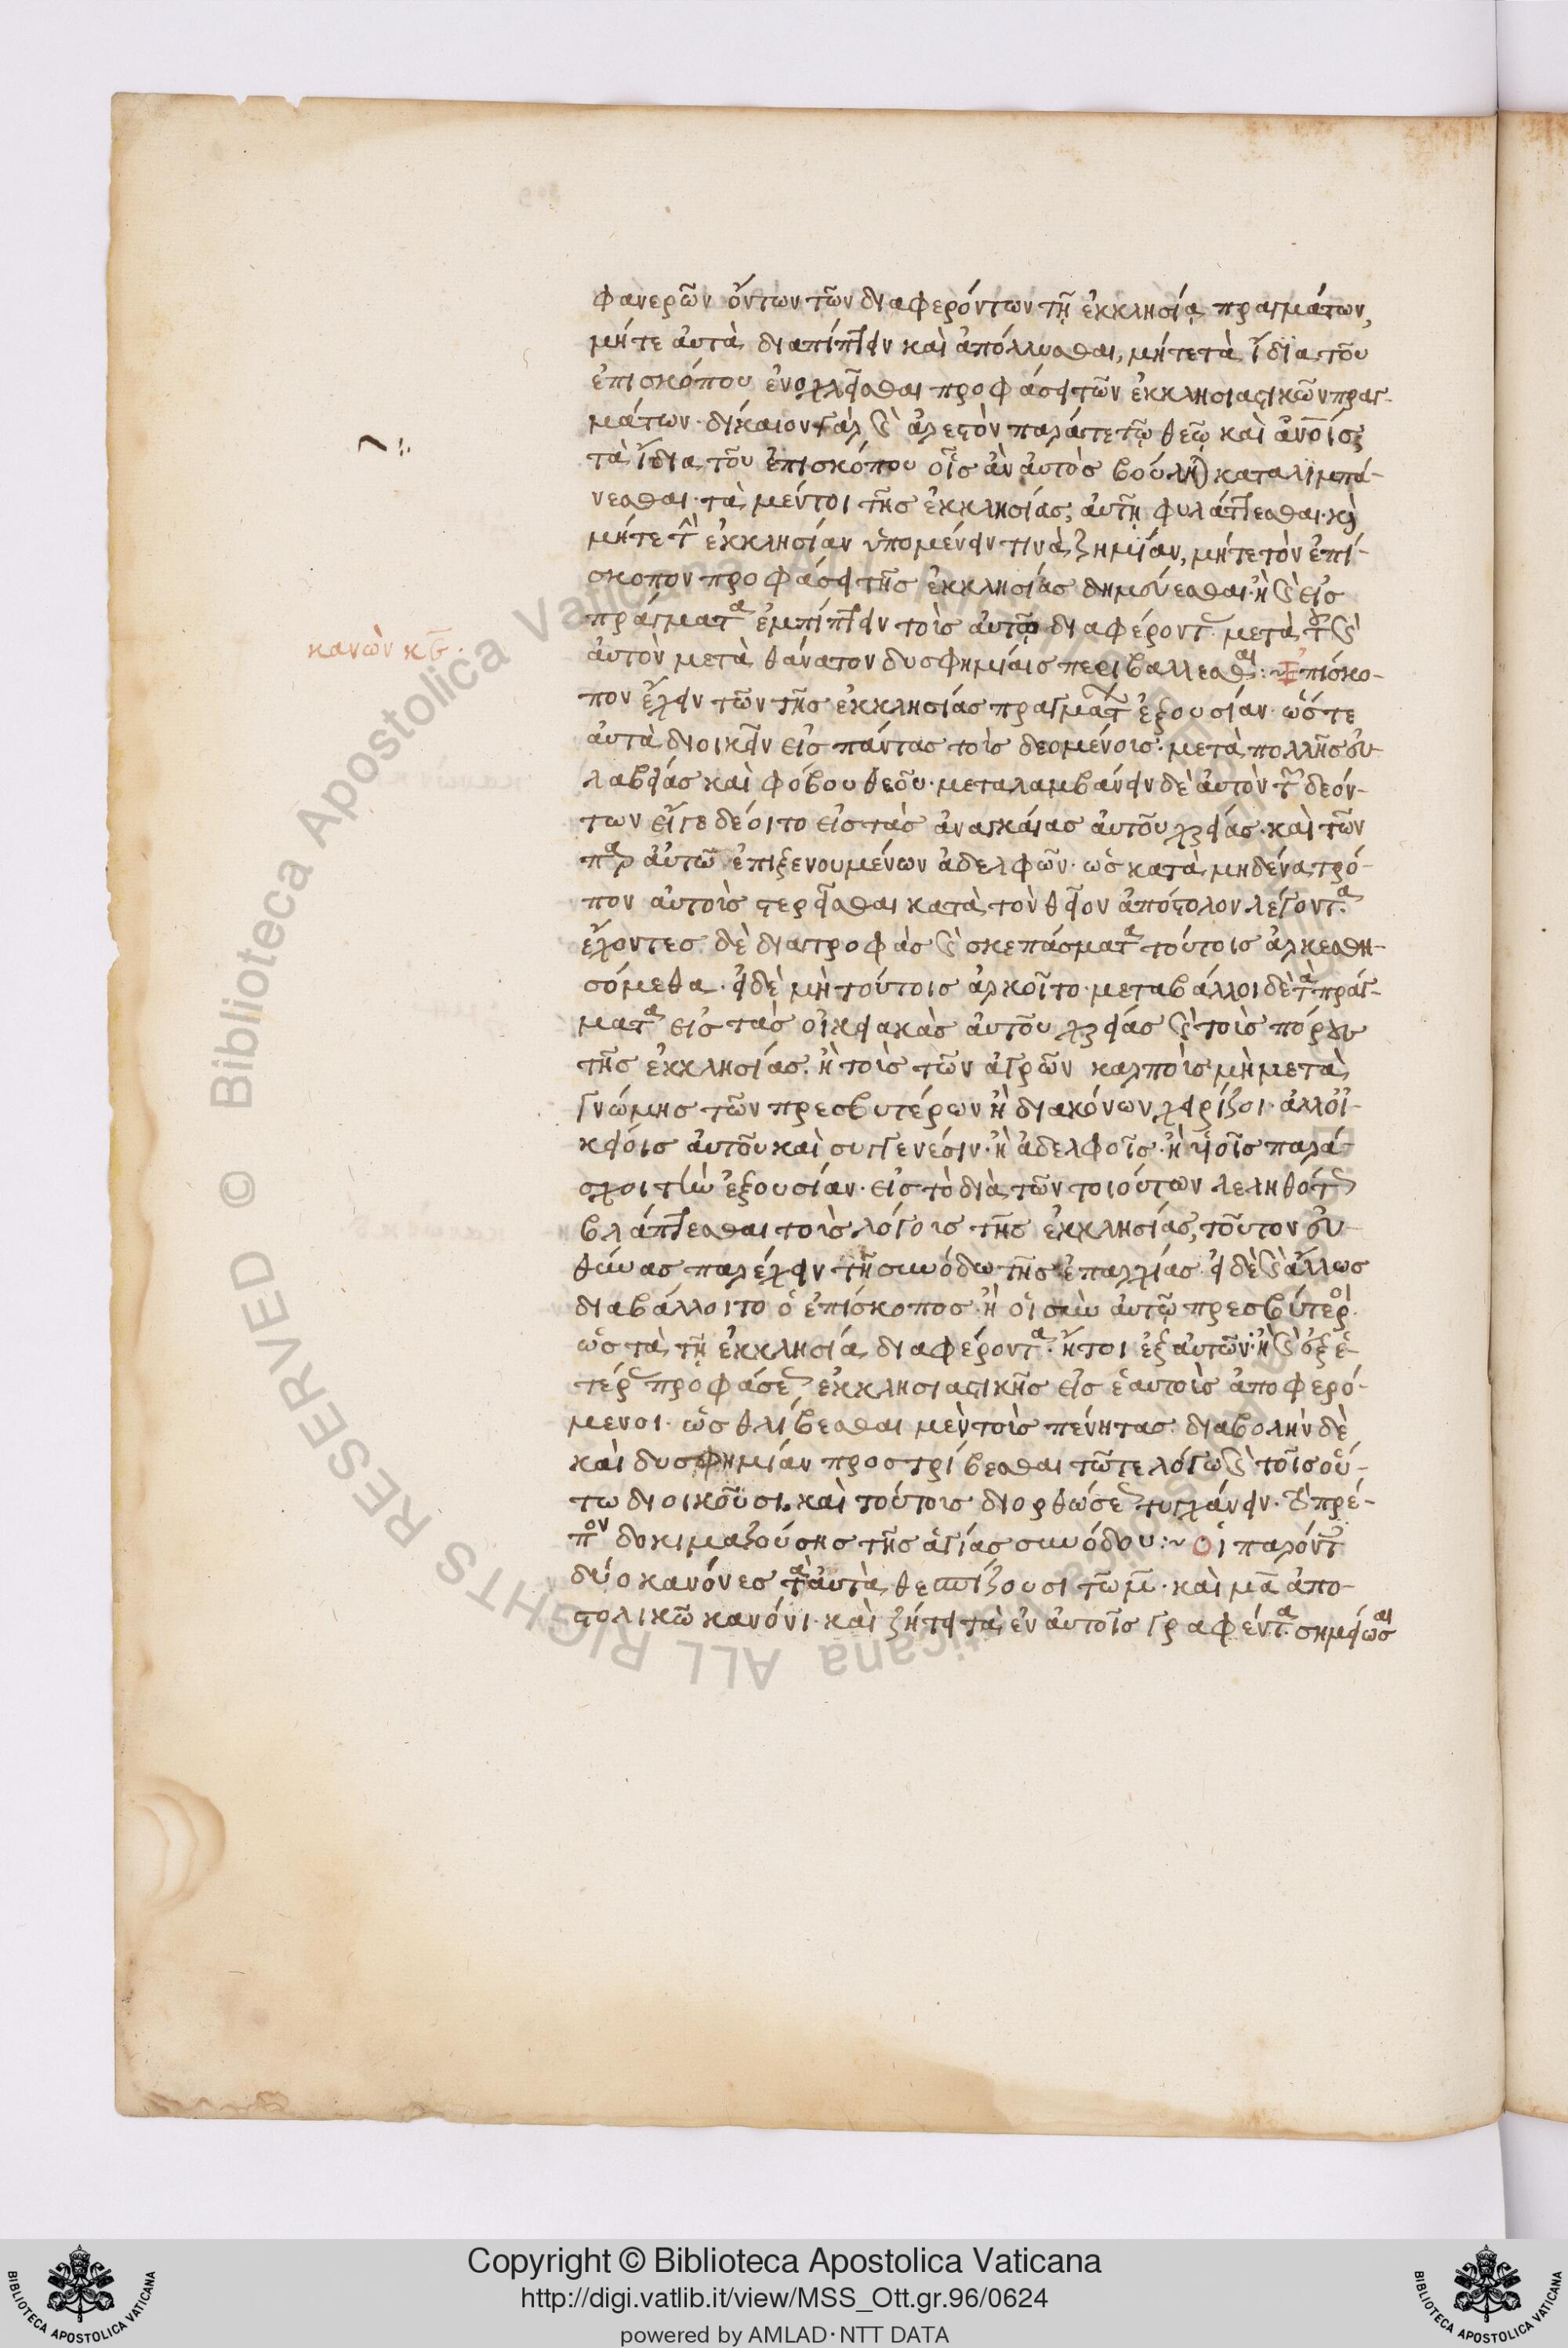 φανερῶν ὄντων τῶν διαφερόντων τῇ ἐκκλησίᾳ πραγμάτων,
μήτε αὐτὰ διαπίπτειν καὶ ἀπόλλυσθαι, μήτε τὰ ἴδια τοῦ
ἐπισκόπου ἐνοχλεῖσθαι προφάσει τῶν ἐκκλησιαστικῶν πραγ-
μάτων· δίκαιον γὰρ καὶ ἀρεστὸν παρά τε τῷ θεῷ καὶ ἀνοις
τὰ ἴδια τοῦ ἐπισκόπου οἷς ἂν αὐτὸς βούληται καταλιμπά-
νεσθαι· τὰ μέντοι τῆς ἐκκλησίας, αὐτῇ φυλάττεσθαι· καὶ
μήτε τὴν ἐκκλησίαν ὑπομένειν τινὰ ζημίαν, μήτε τὸν ἐπί-
σκοπον προφάσει τῆς ἐκκλησίας δημεύεσθαι· ἢ καὶ εἰς
πράγματα ἐμπίπτειν τοὺς αὐτῷ διαφέροντας μετὰ τοῦ καὶ
αὐτὸν μετὰ θάνατον δυσφημίαις περιβάλλεσθαι: Ἐπίσκο-
κανὼν κε·
πον ἔχειν τῶν τῆς ἐκκλησίας πραγμάτων ἐξουσίαν· ὥστε
αὐτὰ διοικεῖν εἰς πάντας τοὺς δεομένους· μετὰ πολλῆς εὐ-
λαβείας καὶ φόβου θεοῦ· μεταλαμβάνειν δὲ αὐτὸν τῶν δεόν-
των εἴγε δέοιτο εἰς τὰς ἀναγκαίας αὐτοῦ χρείας· καὶ τῶν
παρ αὐτῶ ἐπιξενουμένων ἀδελφῶν· ὡς κατὰ μηδένα τρό-
πον αὐτοὺς στερεῖσθαι κατὰ τὸν θεῖον ἀπόστολον λέγοντα·
ἔχοντες δὲ διατροφὰς καὶ σκεπάσματα τούτοις ἀρκεσθη-
σόμεθα· εἰ δὲ μὴ τούτοις ἀρκοῖτο· μεταβάλλοι δὲ τὰ πράγ-
ματα εἰς τὰς οἰκειακὰς αὐτοῦ χρείας καὶ τοὺς πόρους
τῆς ἐκκλησίας· ἢ τοὺς τῶν ἀγρῶν καρποὺς μὴ μετὰ
γνώμης τῶν πρεσβυτέρων ἢ διακόνων χειρίζοι· ἀλλ οἰ-
κείοις αὐτοῦ καὶ συγγενέσιν· ἢ ἀδελφοῖς· ἢ υἱοῖς παρά-
σχοι τὴν ἐξουσίαν· εἰς τὸ διὰ τῶν τοιούτων λεληθότως
βλάπτεσθαι τοὺς λόγους τῆς ἐκκλησίας, τοῦτον εὐ-
θύνας παρέχειν τῇ συνόδω τῆς ἐπαρχίας· εἰ δὲ καὶ ἄλλως
διαβάλλοιτο ὁ ἐπίσκοπος· ἢ οἱ σὺν αὐτῷ πρεσβύτεροι
ὡς τὰ τῇ ἐκκλησία διαφέροντα· ἤτοι ἐξ αὐτῶν· ἢ καὶ ἐξ ἑ-
τέρας προφάσεως ἐκκλησιαστικῆς εἰς ἑαυτοὺς ἀποφερό-
μενοι· ὡς θλίβεσθαι μὲν τοὺς πένητας· διαβολὴν δὲ
καὶ δυσφημίαν προστρίβεσθαι τῶ τε λόγω καὶ τοῖς οὕ-
τω διοικοῦσι· καὶ τούτους διορθώσεως τυγχάνειν· τὸ πρέ-
πον δοκιμαζούσης τῆς ἁγίας συνόδου:~ Οἱ παρόντες
δύο κανόνες τὰ αὐτὰ θεσπίζουσι τῶ μ̅· καὶ μ̅α̅ ἀπο-
στολικῶ κανόνι· καὶ ζήτει τὰ ἐν αὐτοῖς γραφέντα σημείωσαι